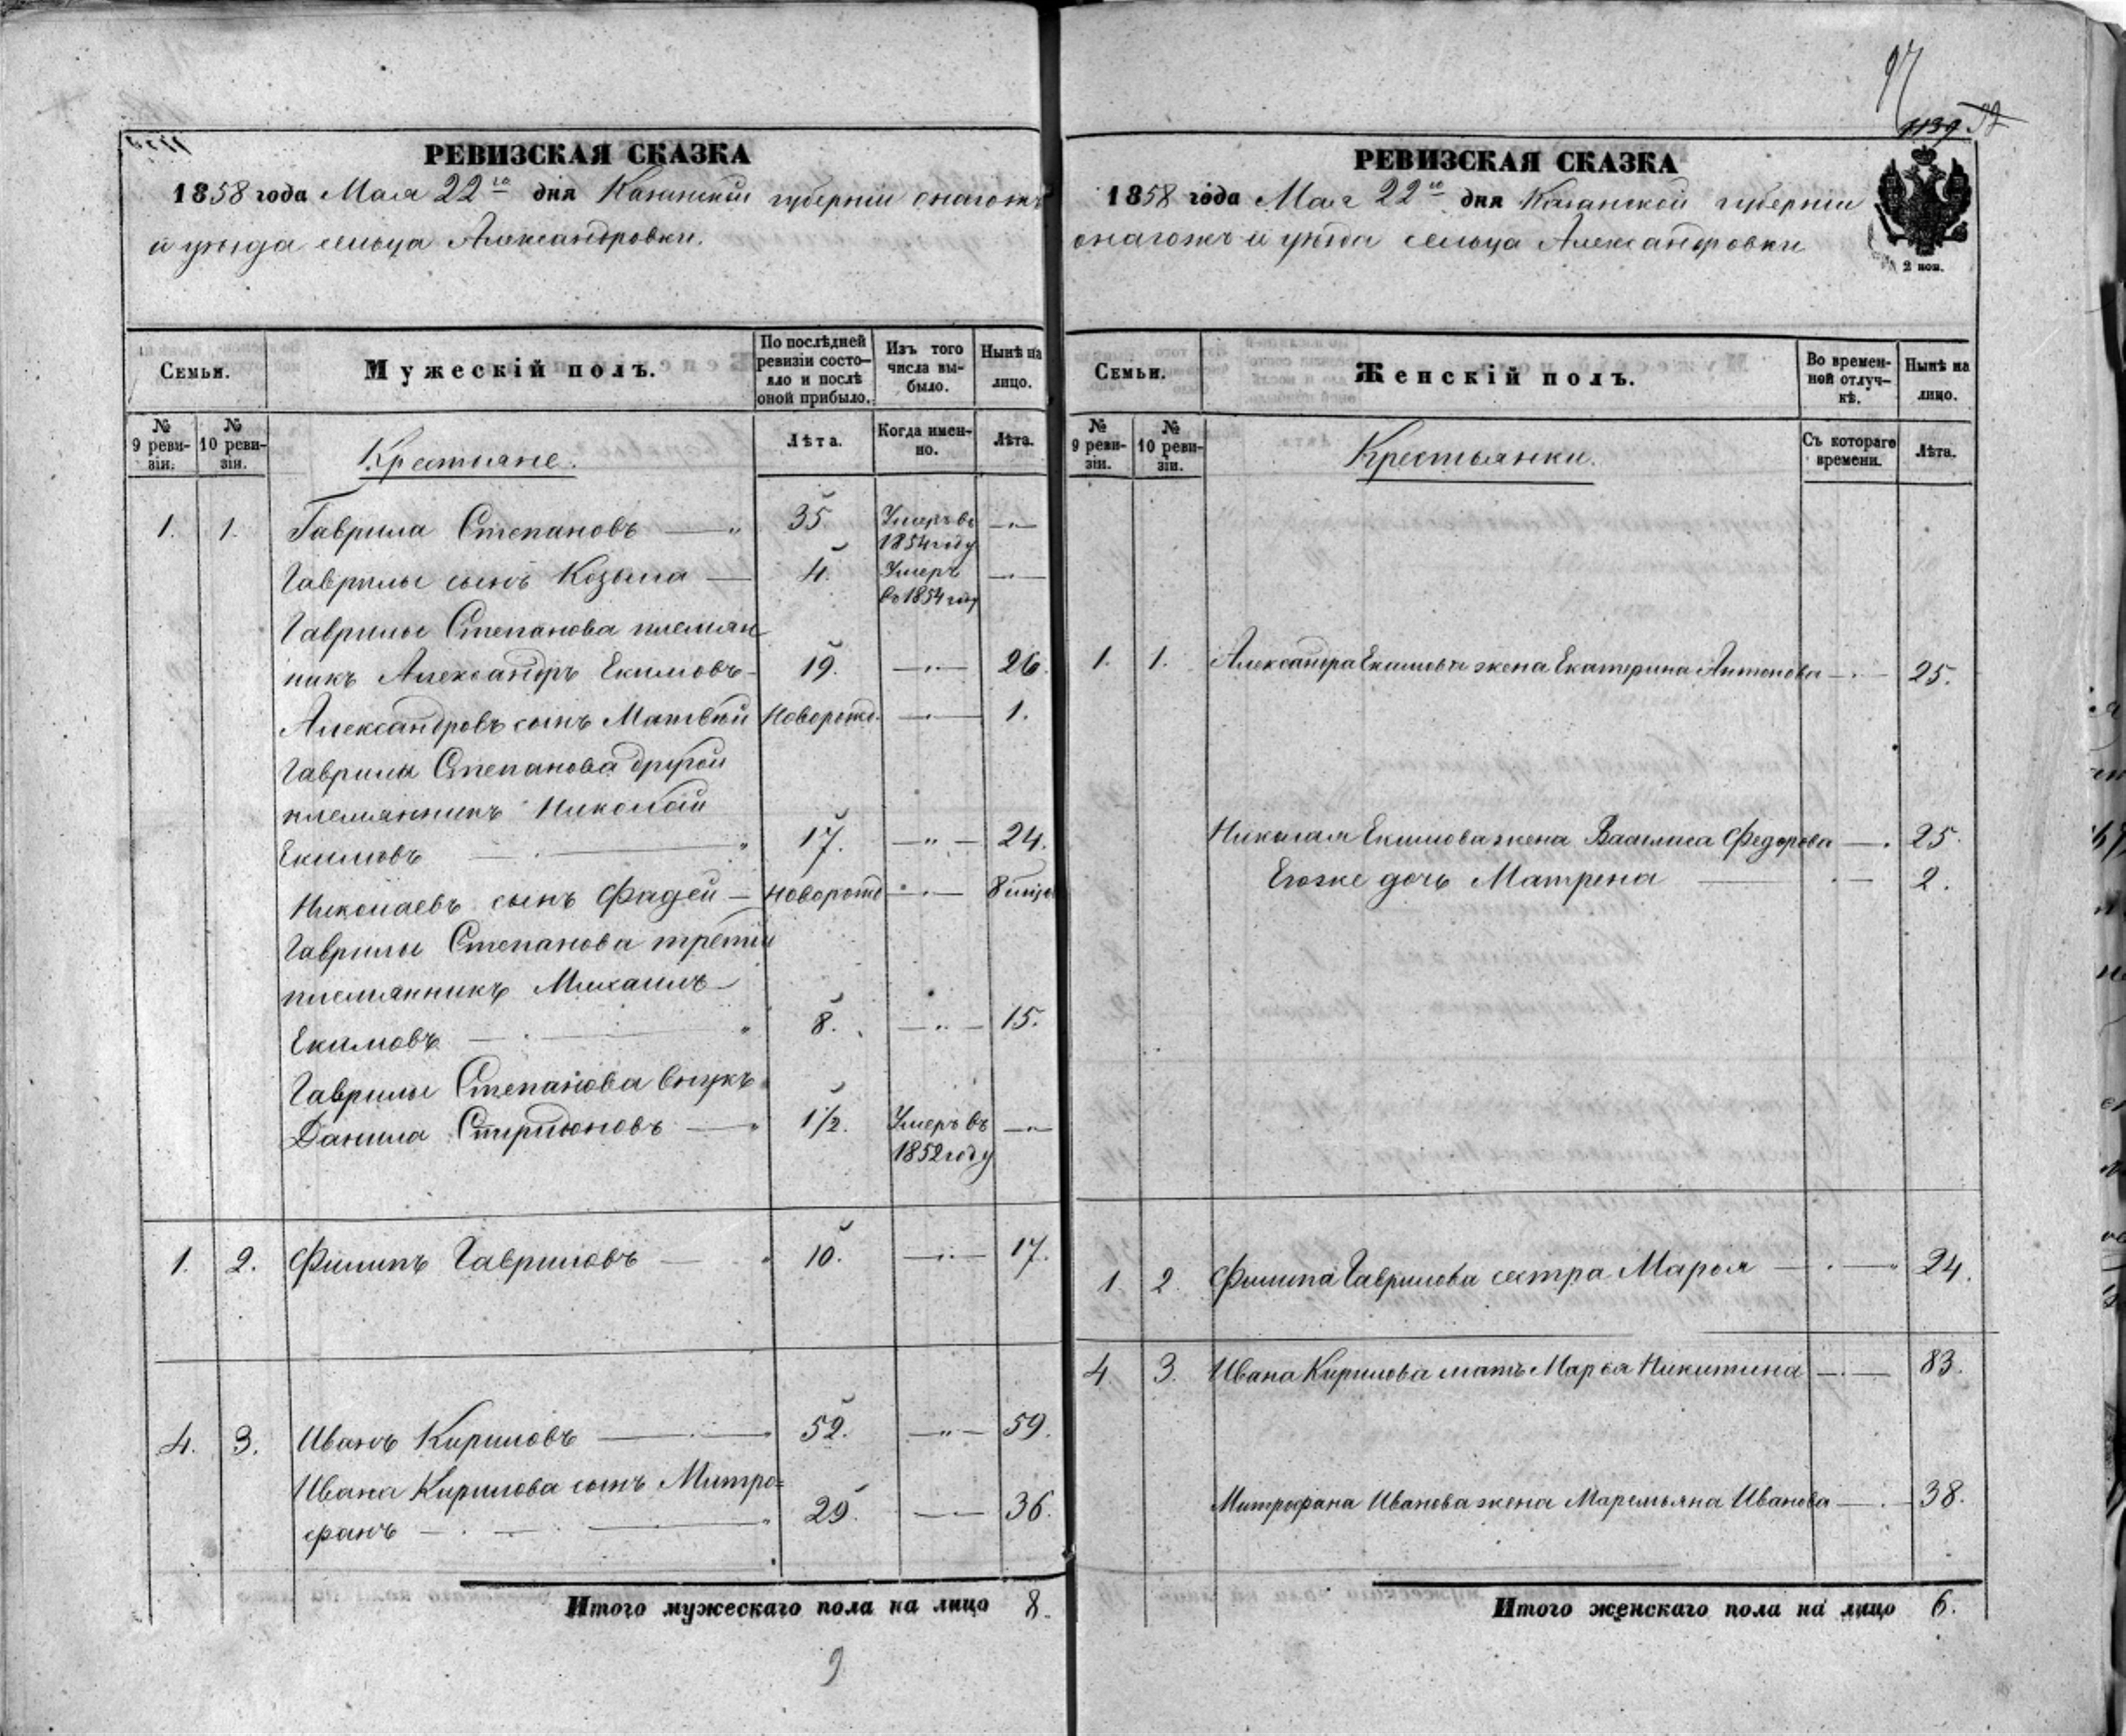 РЕВИЗСКАЯ СКАЗКА
1858 года Мая 22го дня Казанской губерніи онагожъ
и уѣзда сельца Александровки.
Семьи.
Мужескій полъ.
По послѣдней ревизіи состояло и послѣ оной прибыло.
Изъ того числа выбыло.
Нынѣ на лицо.
№ 9 ревизіи.
№ 10 ревизіи.
Крестьяне.
Лѣта.
Когда именно.
Лѣта.
1. 1. Гаврила Степановъ 35 Умеръ въ 1854 году
Гаврилы сынъ Козьма 4. Умеръ въ 1854 году
Гаврилы Степанова племян
никъ Александръ Екимовъ 19. 26.
Александровъ сынъ Матвѣй Новорожд. 1.
Гаврилы Степанова другой
племянникъ Николай
Екимовъ 17. 24.
Николаевъ сынъ Фадей Новорожд 8 мѣся
Гаврилы Степанова третій
племянникъ Михаилъ
Екимовъ 8. 15.
Гаврилы Степанова внукъ
Данила Спиридоновъ 1½. Умеръ въ 1852 году
1. 2. Филипъ Гавриловъ 10. 17.
4. 3. Иванъ Кириловъ 52. 59.
Ивана Кирилова сынъ Митро=
фанъ 29. 36.
Итого мужескаго пола на лицо 8.
9
97
1139
РЕВИЗСКАЯ СКАЗКА
1858 года Мая 22го дня Казанской губерніи
онагожъ и уѣзда сельца Александровки
2 коп.
Семьи.
Женскій полъ.
Во временной отлучкѣ.
Нынѣ на лицо.
№ 9 ревизіи.
№ 10 ревизіи.
Крестьянки.
Съ котораго времени.
Лѣта.
1. 1. Александра Екимова жена Екатерина Антонова 25.
Николая Екимова жена Василиса Федорова 25.
Егоже дочь Матрена 2.
1. 2. Филипа Гаврилова сестра Марья 24.
4. 3. Ивана Кирилова мать Марья Никитина 83.
Митрофана Иванова жена Маремьяна Иванова 38.
Итого женскаго пола на лицо 6.